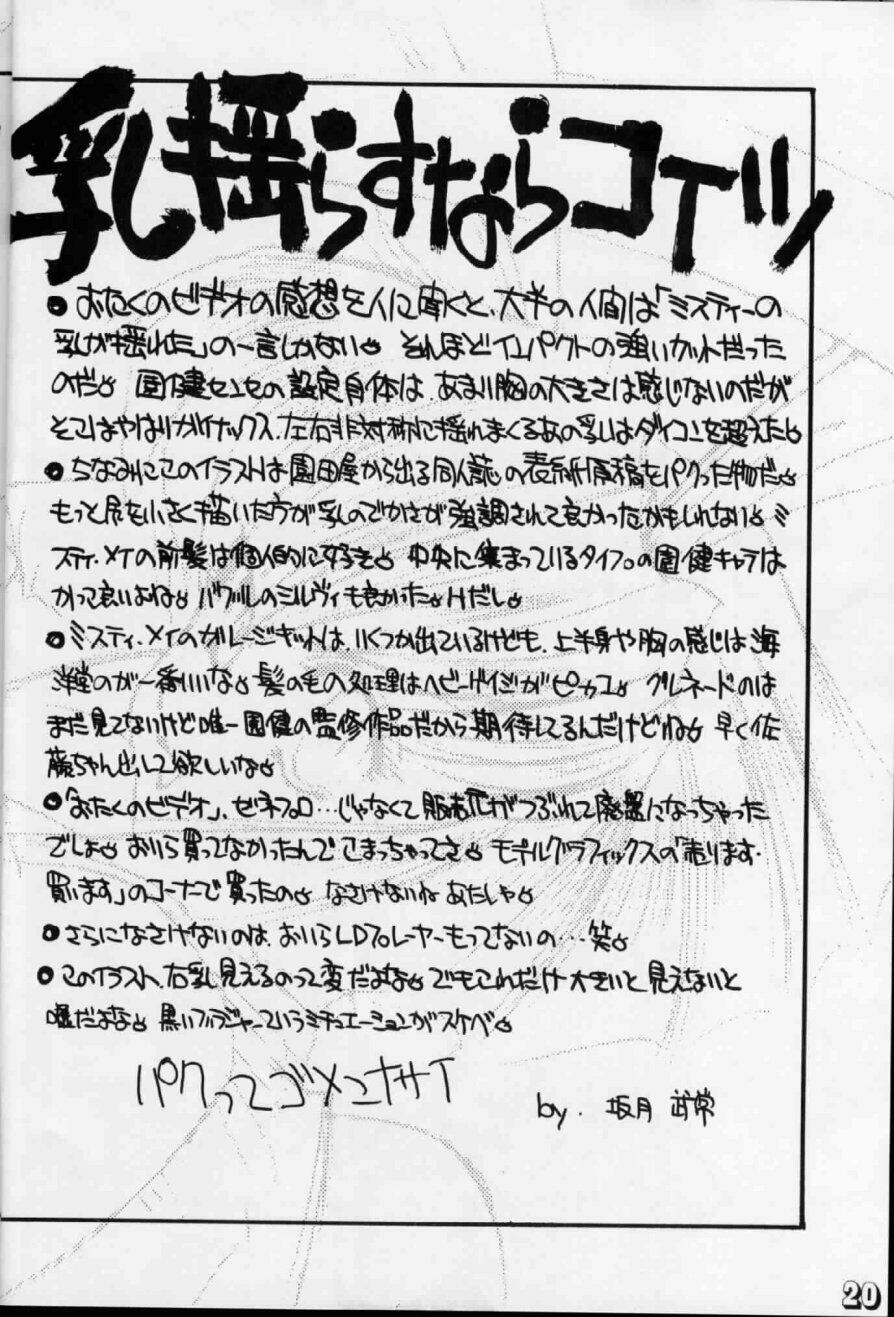 乳揺らすならコイツ
●おたくのビデオの感想を人に聞くと、大半の人間は「ミスティーの
乳が揺れた」の一言しかない。それほどインパクトの強いカットだった
のだ。園健センセの設定自体は、あまり胸の大きさは感じないのだが
そこはやはりガイナックス、左右非対称に揺れまくるあの乳はダイコンを超えた。
●ちなみにこのイラストは園田屋から出る同人誌の表紙原稿をパクった物だ。
もっと尻を小さく描いた方が乳のでかさが強調されて良かったかもしれない。ミ
スティ・メイの前髪は個人的に好き。中央に集まっているタイプの園健キャラは
かって良いよね。パウルのシルヴィも良かった。Hだし。
●ミスティ・メイのガレージキットは、いくつか出ているけども、上半身や胸の感じは海
洋堂のが一番いいな。髪の毛の処理はヘビーゲイジがピカコ。グレネードのは
まだ見てないけど唯一園健の監修作品だから期待してるんだけどね。早く佐
藤ちゃん出して欲しいな。
●「おたくのビデオ」、ゼネプロ…じゃなくて販売元がつぶれて廃盤になっちゃった
でしょ。おいら買ってなかったんでこまっちゃってさ。モデルグラフィックスの「売ります・
買います」のコーナーで買ったの。なさけないねあたしゃ。
●さらになさけないのは、おいらLDプレーヤーもってないの…笑。
●このイラスト、右乳見えるのって変だよな。でもこれだけ大きいと見えないと
嘘だよな。黒いブラジャーっていうシチュエーションがスケベ。
パクってゴメンナサイ
by. 坂月 武常
20